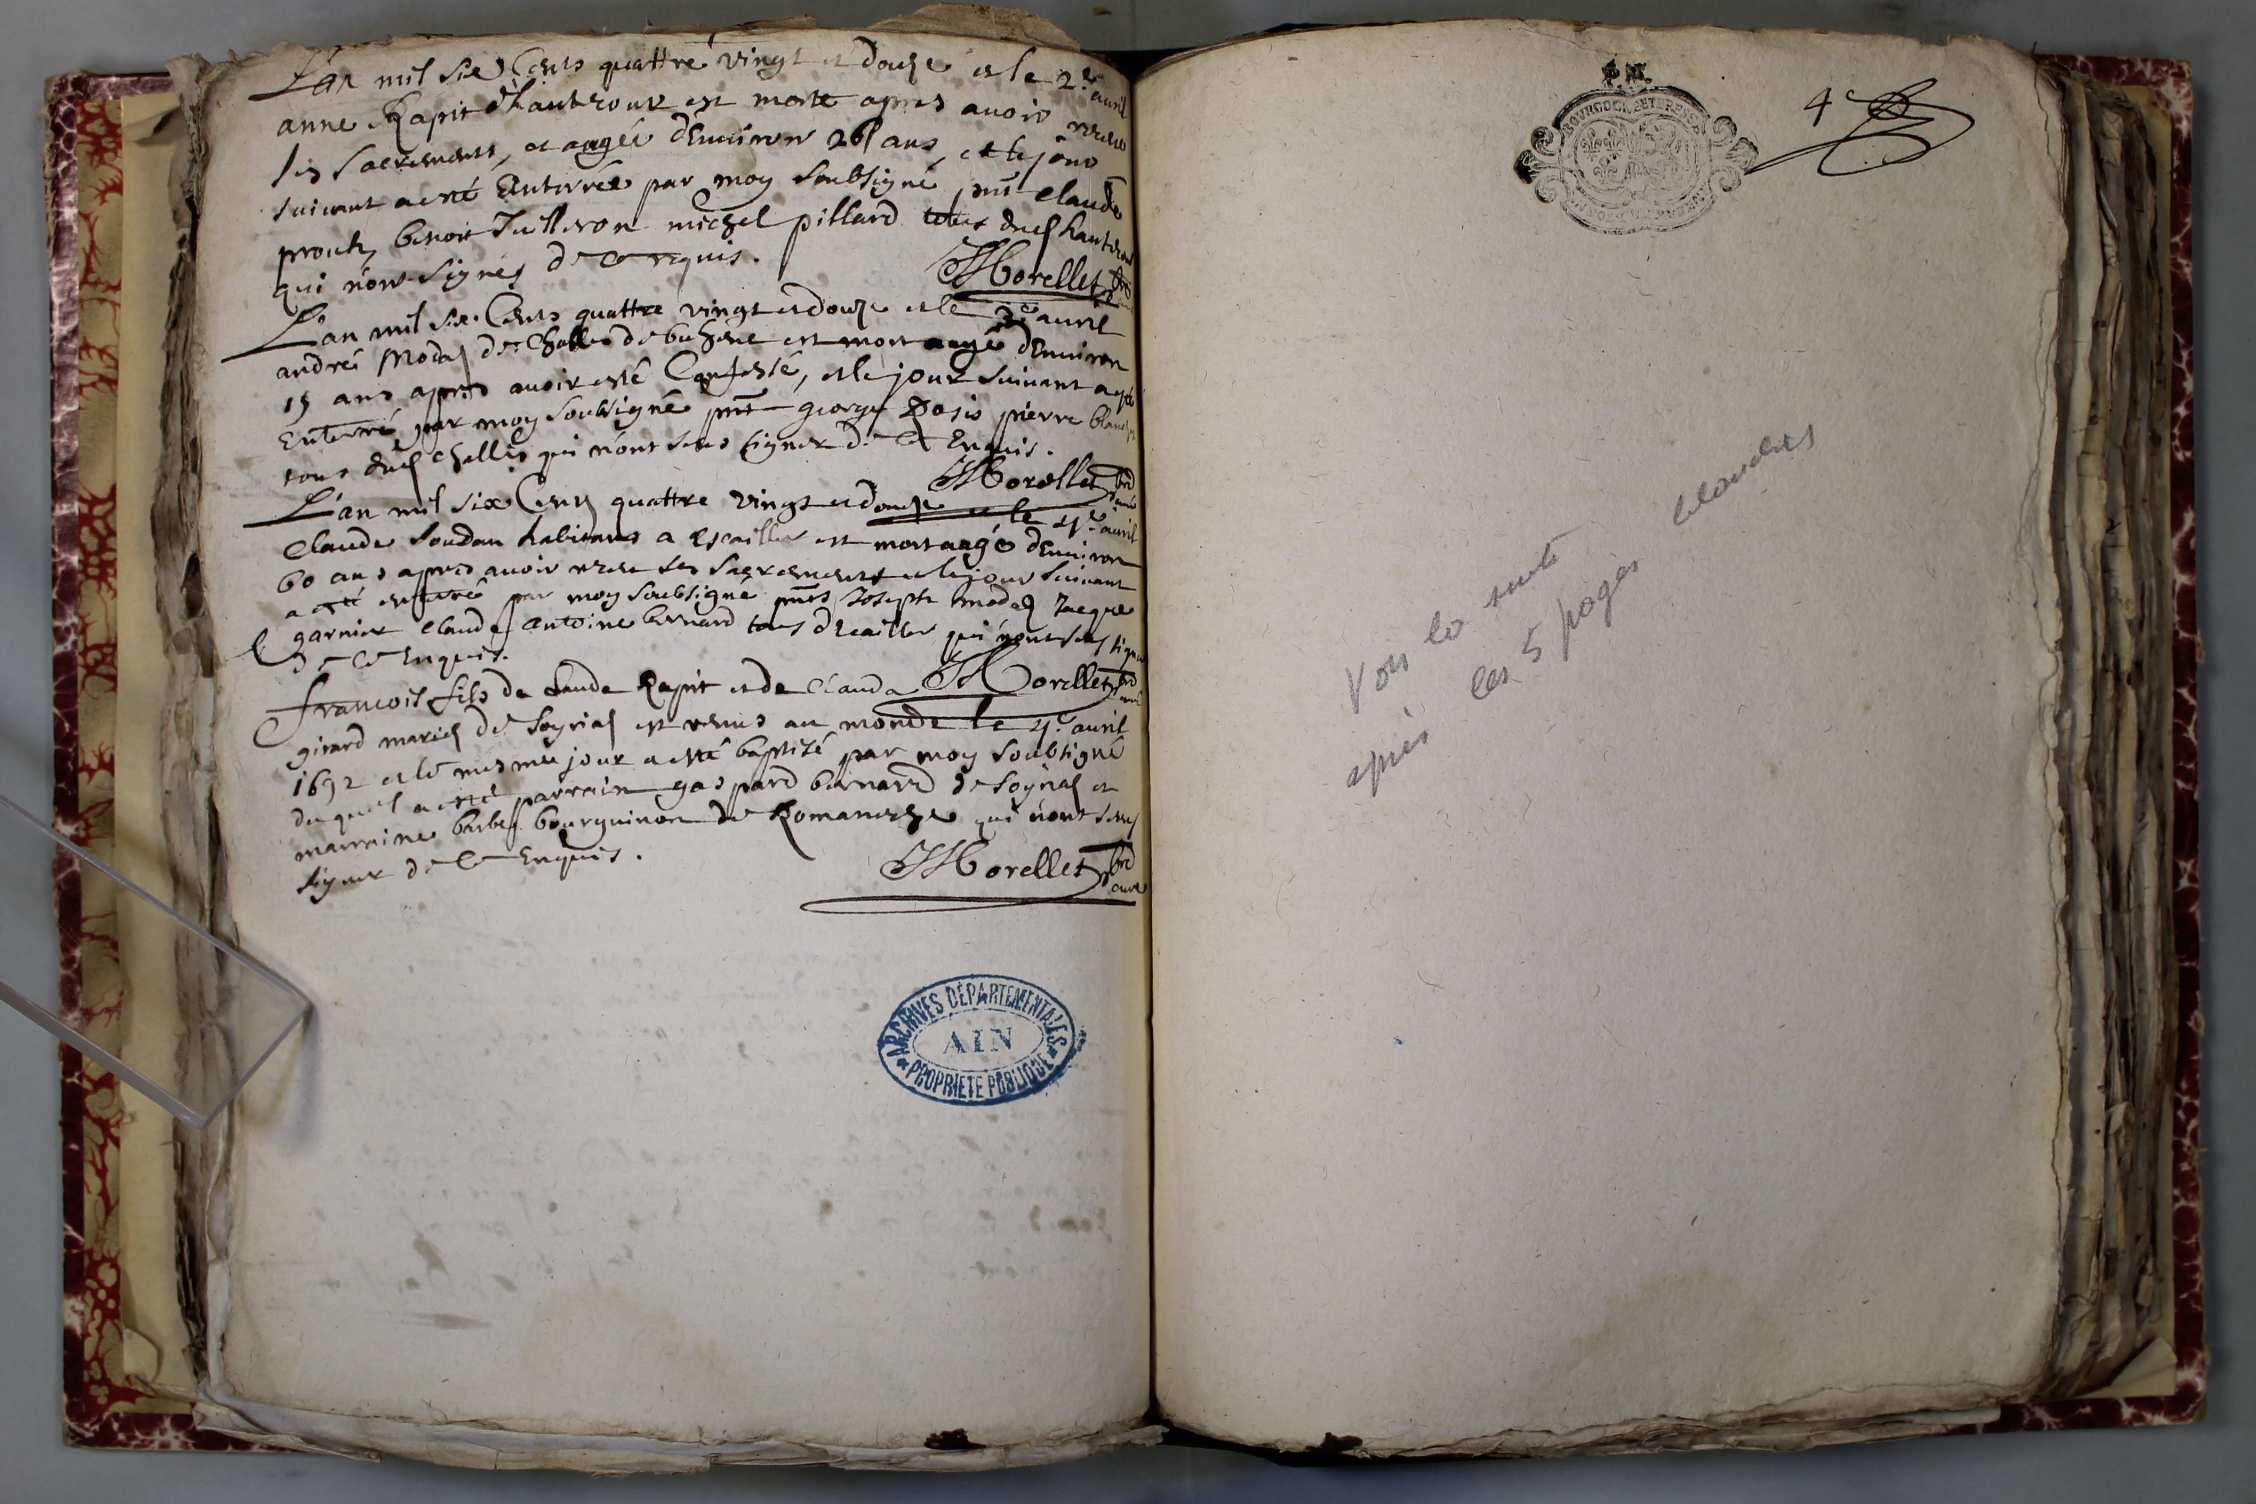 L'an mil six Cents quattre vingt et douze et le 2e avril
anne Rapit d'hautroux est morte apres avoir receu
les sacrements, et aagée d'Environ 26 ans, et le jour
suivant a esté Enterrée par moy soubsigné pnt claude
benoit Juilleron michel pillard
qui n'ont signés de ce requis.
JMorellet
L'an mil six Cents quattre vingt et douze et le 3e avril
andré de Challes de bohene est mort aagé d'Environ
15 ans apres avoir esté Confessé, et le jour suivant a esté
Enterré par moy soubsigné pnt george pierre
tous dud challes qui n'ont sceus signer de ce Enquis.
JMorellet
L'an mil six Cents quattre vingt et douze et le 4e avril
Claude soudan habitant a Escailles est mort aagé d'Environ
60 ans apres avoir receu les sacrements et le jour suivant
a esté enterré par moy soubsigné pnts Joseph Jacque
garnier claude antoine bernard tous d'Ecailles qui n'ont sceus signer
de ce Enquis.
françois fils de claude Rapit et de Clauda JMorellet
girard mariés de soyria est venus au monde le 4e avril
1692 et le mesme jour a esté baptisé par moy soubsigné
du quel a esté parrain gaspard bernard de soyria et
marraine bourguinon de Romaneche qui n'ont sceus
signer de ce Enquis.
JMorellet
ARCHIVES DÉPARTEMENTALES
AIN
PROPRIETE PUBLIQUE
4e
Voir la suite
après les 5 pages blanches